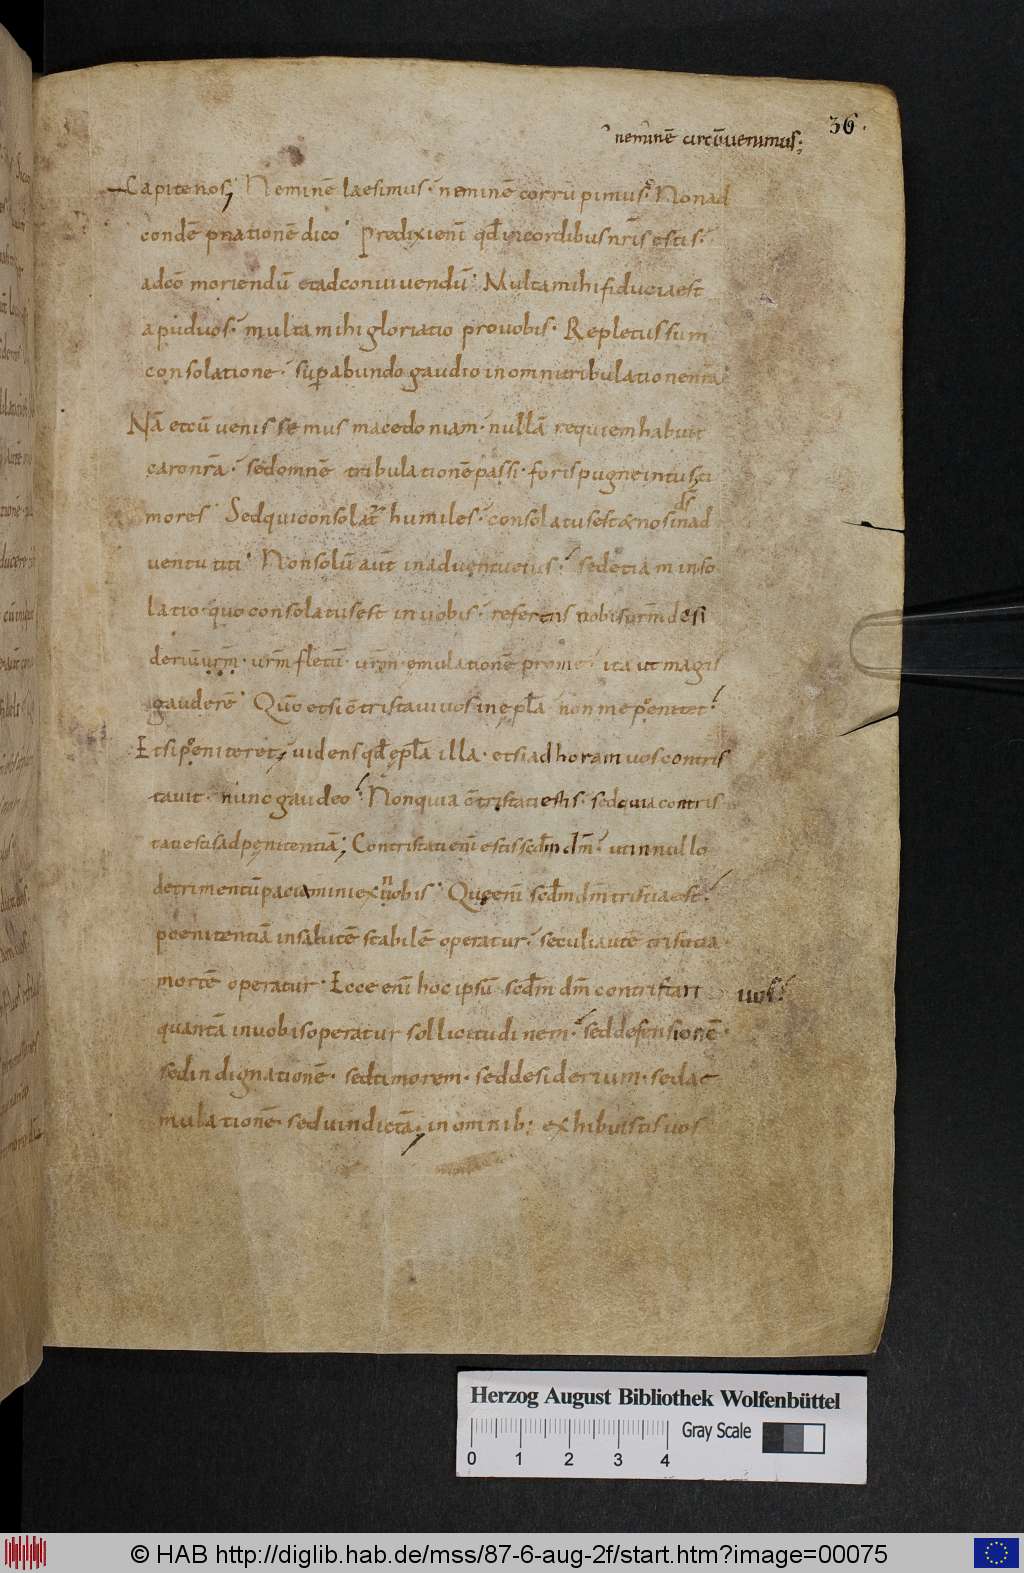 36.
neminē circūuenimus;
Capite nos; Neminē laesimus. neminē corrupimus. Nonad
condēpnationē dico. Predixi eni qđ incordibus nr̄is estis.
adcō moriendū etadconuiuendū. Multa mihi fiducia est
apud uos. multa mihi gloriatio prouobis. Repletus sum
consolatione. supabundo gaudio in omni tribulatione nr̄a
Nā etcū uenissemus macedoniam. nullā requiem habuit
caro nr̄a. sed omnē tribulationē passi. foris pugnę intus ti
mores. Sed qui consolat̄ humiles. consolatus est & nos ds̄ inad
uentu titi. Non solū aut̄ in aduentu eius. sed etiam inso
latio. quo consolatus est in uobis. referens nobis ur̄m desi
deriū ur̄m. ur̄m fletū. ur̄m. emulationē pro me. ita ut magis
gauderē. Quō etsi cōtristaui uos in epl̄a non me penitet.
Et si peniteret; uidens qđ epl̄a illa. etsi ad horam uos contris
tauit. nunc gaudeo. Non quia cōtristati estis. sed quia contris
tati estis ad penitentiā; Contristati eni estis scdm dm̄. ut in nullo
detrimentū patiamini ex nobis. Quę eni scdm dm̄ tristia est.
poenitentiā insalutē stabilē operatur. seculi autē tristitia
mortē operatur. Ecce eni hoc ipsū scdm dm̄ contristari uos.
quantā in uobis operatur sollicitudinem. sed defensionē.
sed indignationē. sed timorem. sed desiderium. sed ae
mulationē. sed uindictā; in omnib: exhibuistis uos
Herzog August Bibliothek Wolfenbüttel
Gray Scale
0 1 2 3 4
© HAB http://diglib.hab.de/mss/87-6-aug-2f/start.htm?image=00075